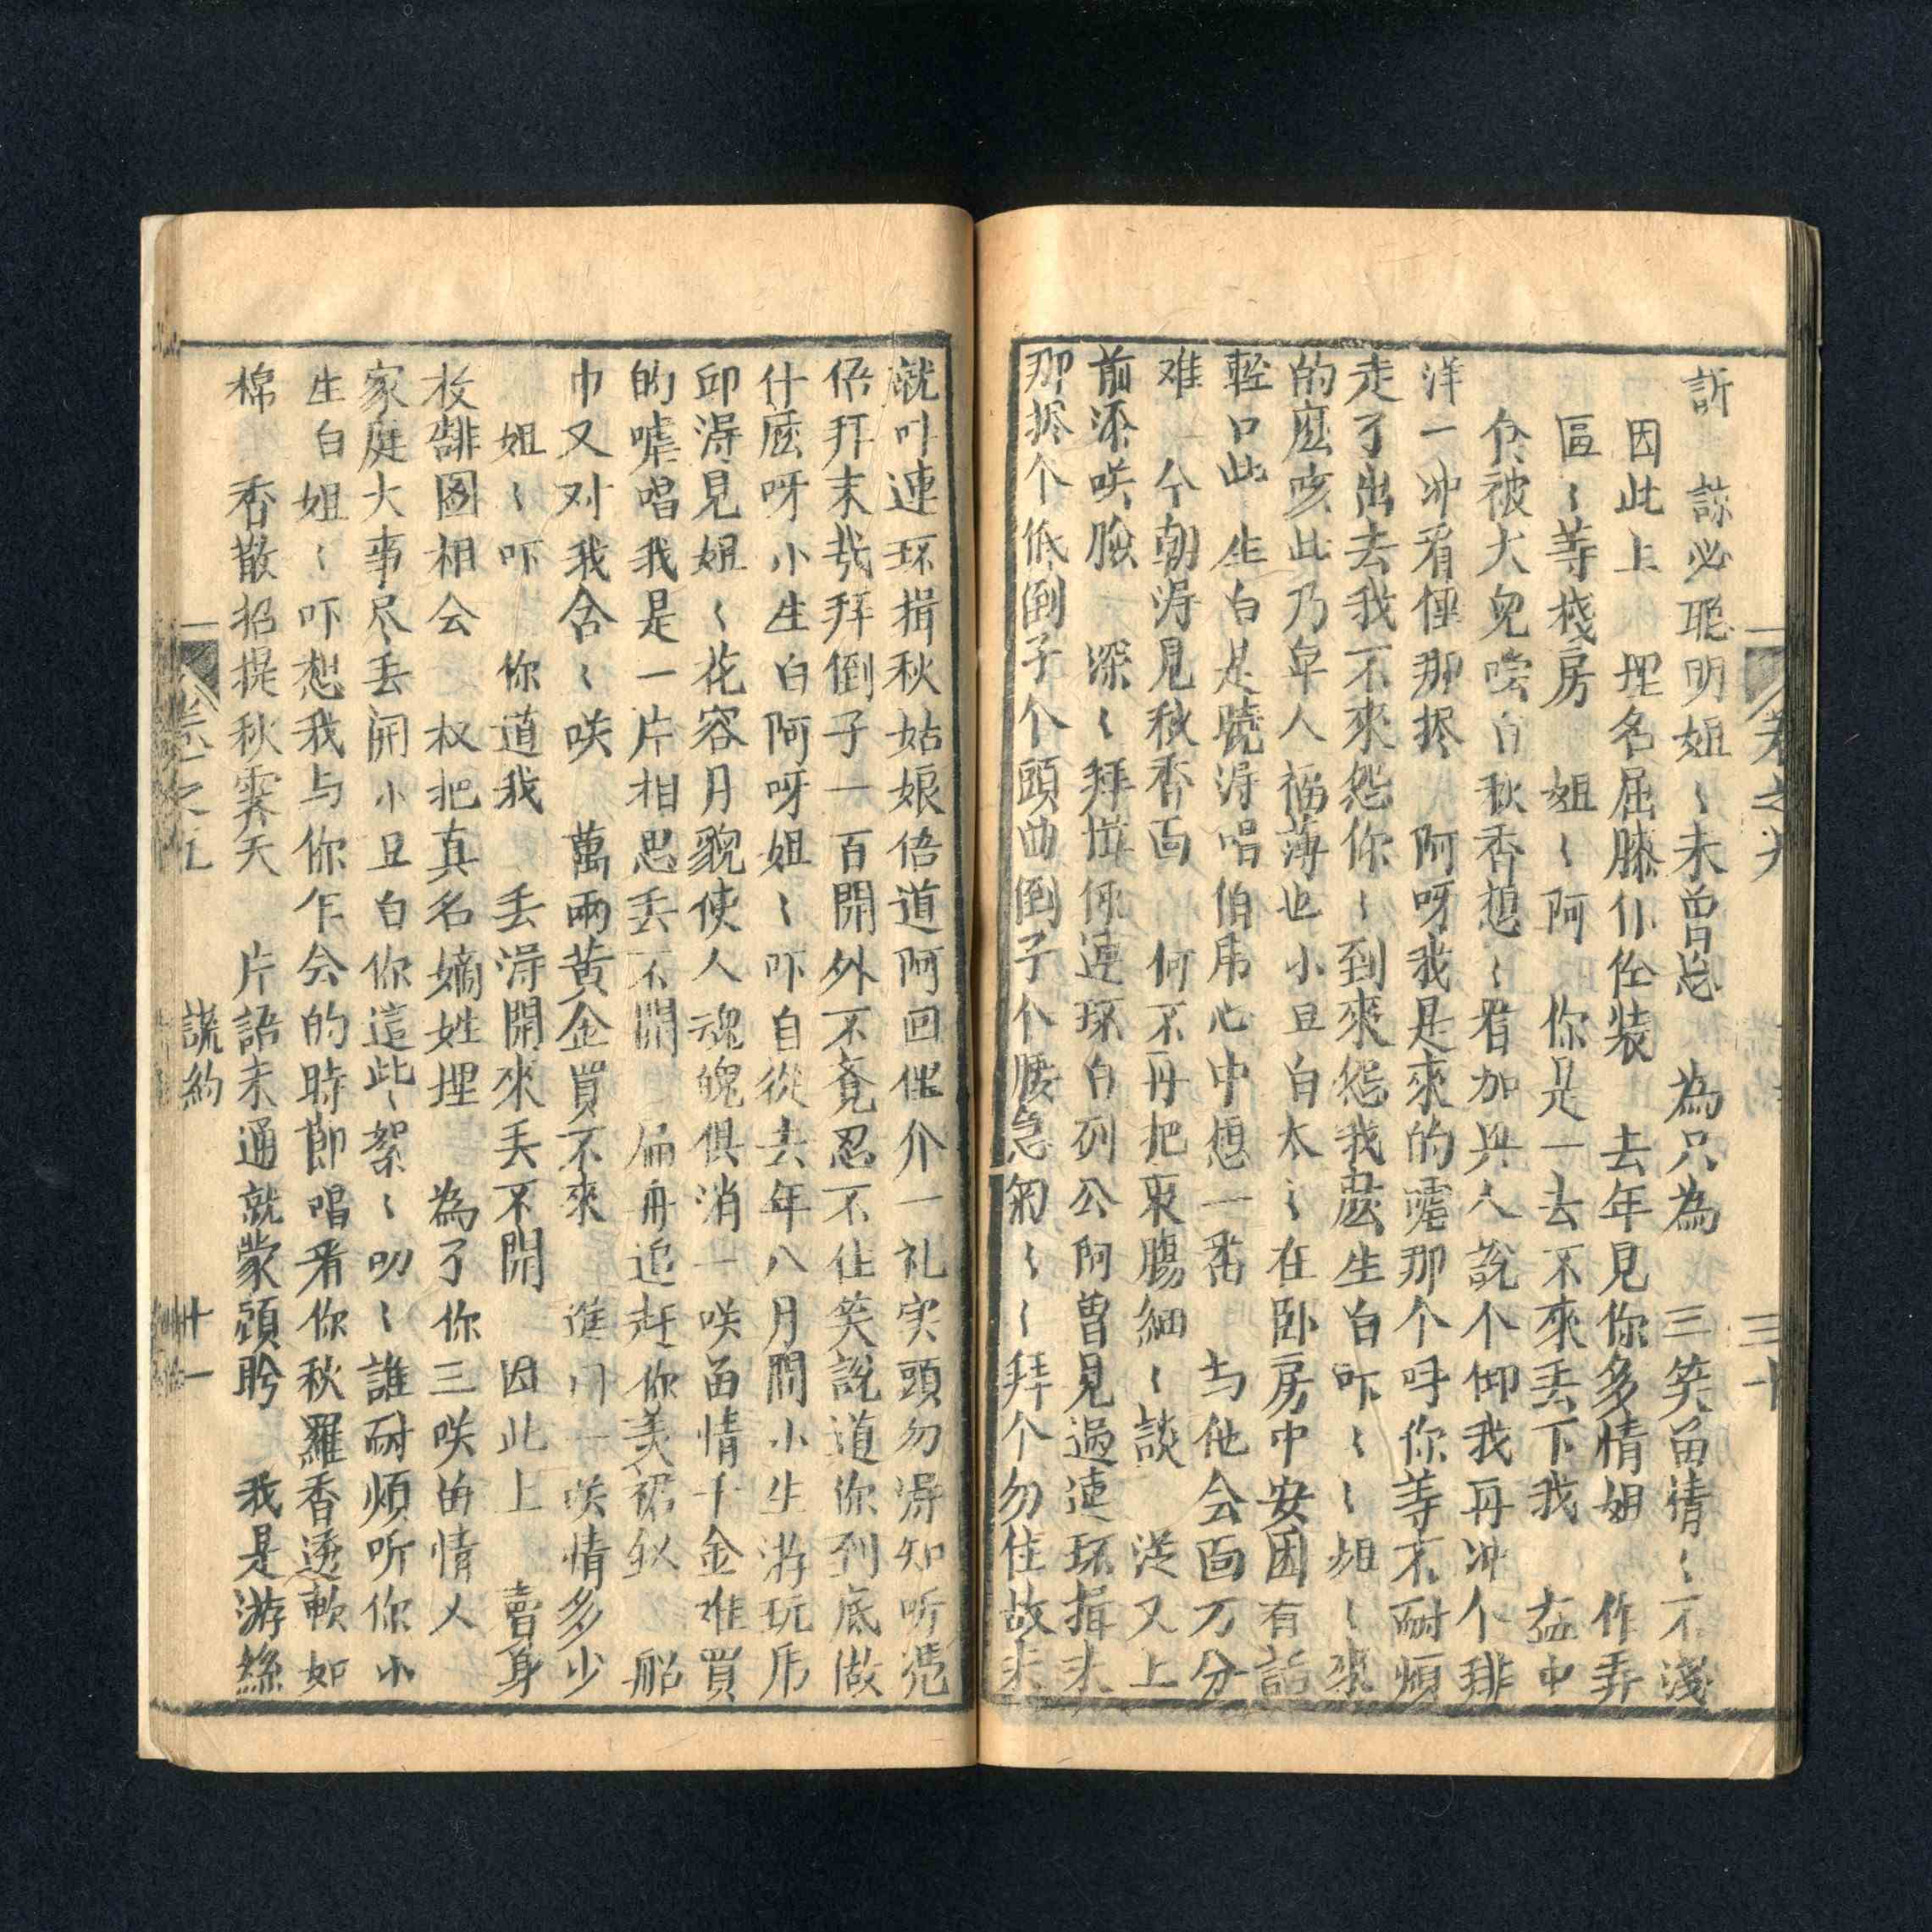 卷之六 三十
訴 諒必聰明姐〻未曾忘 為只為 三笑畄情〻不淺
因此上 埋名屈膝作侄装 去年見你多情姐 作弄
區〻等棧房 姐〻阿 你是一去不來丢下我 盃中
被大兒 白秋香想〻看加兵人說个仰我再冲个排
洋一冲看俚那拰 阿呀我是來的嘘那个呼你等不耐煩
走了出去我不來怨你〻到來怨我庅生白吓〻〻姐〻來
的麽咳此乃卑人福薄也小旦白太〻在卧房中安困有話
輕口些 生白是曉淂唱伯虎心中想一番 与他会面万分
难 今朝淂見秋香面 何不再把衷腸細〻談 淫又上
前添咲臉 深〻拜揖 連环白列公阿曽見過連环揖末
那拰个低倒子个頭曲倒子个腰急匊〻〻拜个勿住故末
就叶連环揖秋姑娘俉道阿回俚介一礼实頭勿淂知听凴
俉拜末哉拜倒子一百開外不竟忍不住笑說道你到底做
什庅呀小生白阿呀姐〻吓自從去年八月間小生游玩虎
邱淂見姐〻花容月貌使人魂魄俱消一咲畄情千金难買
的嘘唱我是一片相思丢不開 扁舟追赶你美裙釵 船
巾又对我含〻咲 萬兩黄金買不來 進门一咲情多少
姐〻吓 你道我 丢淂開來丢不開 因此上 賣身
投靠圖相会 权把真名嫡姓埋 為了你三咲畄情人
家庭大事尽丢開小旦白你這些絮〻叨〻誰耐煩听你小
生白姐〻吓想我与你乍会的時節唱看你秋羅香透軟如
棉 香散招提秋霁天 片語未通就蒙頭盼 我是游絲
卷之五 謊約 十一